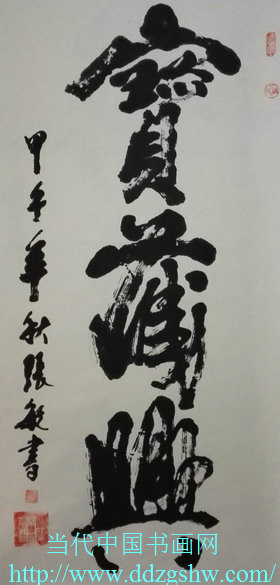 寶藏興
甲午華秋張書
当代中国书画网
http://www.ddzgshw.com/